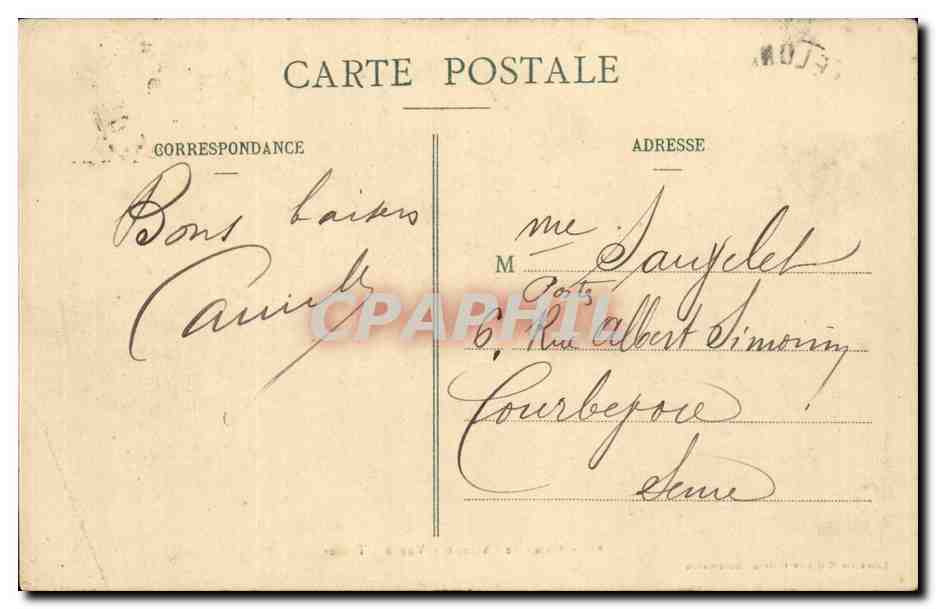 CARTE POSTALE
CORRESPONDANCE
Bons baisers
Camille
ADRESSE
Mme Saugelet
Poste
6, Rue Albert Simonin
Courbevoie
Seine
CPAPHIL